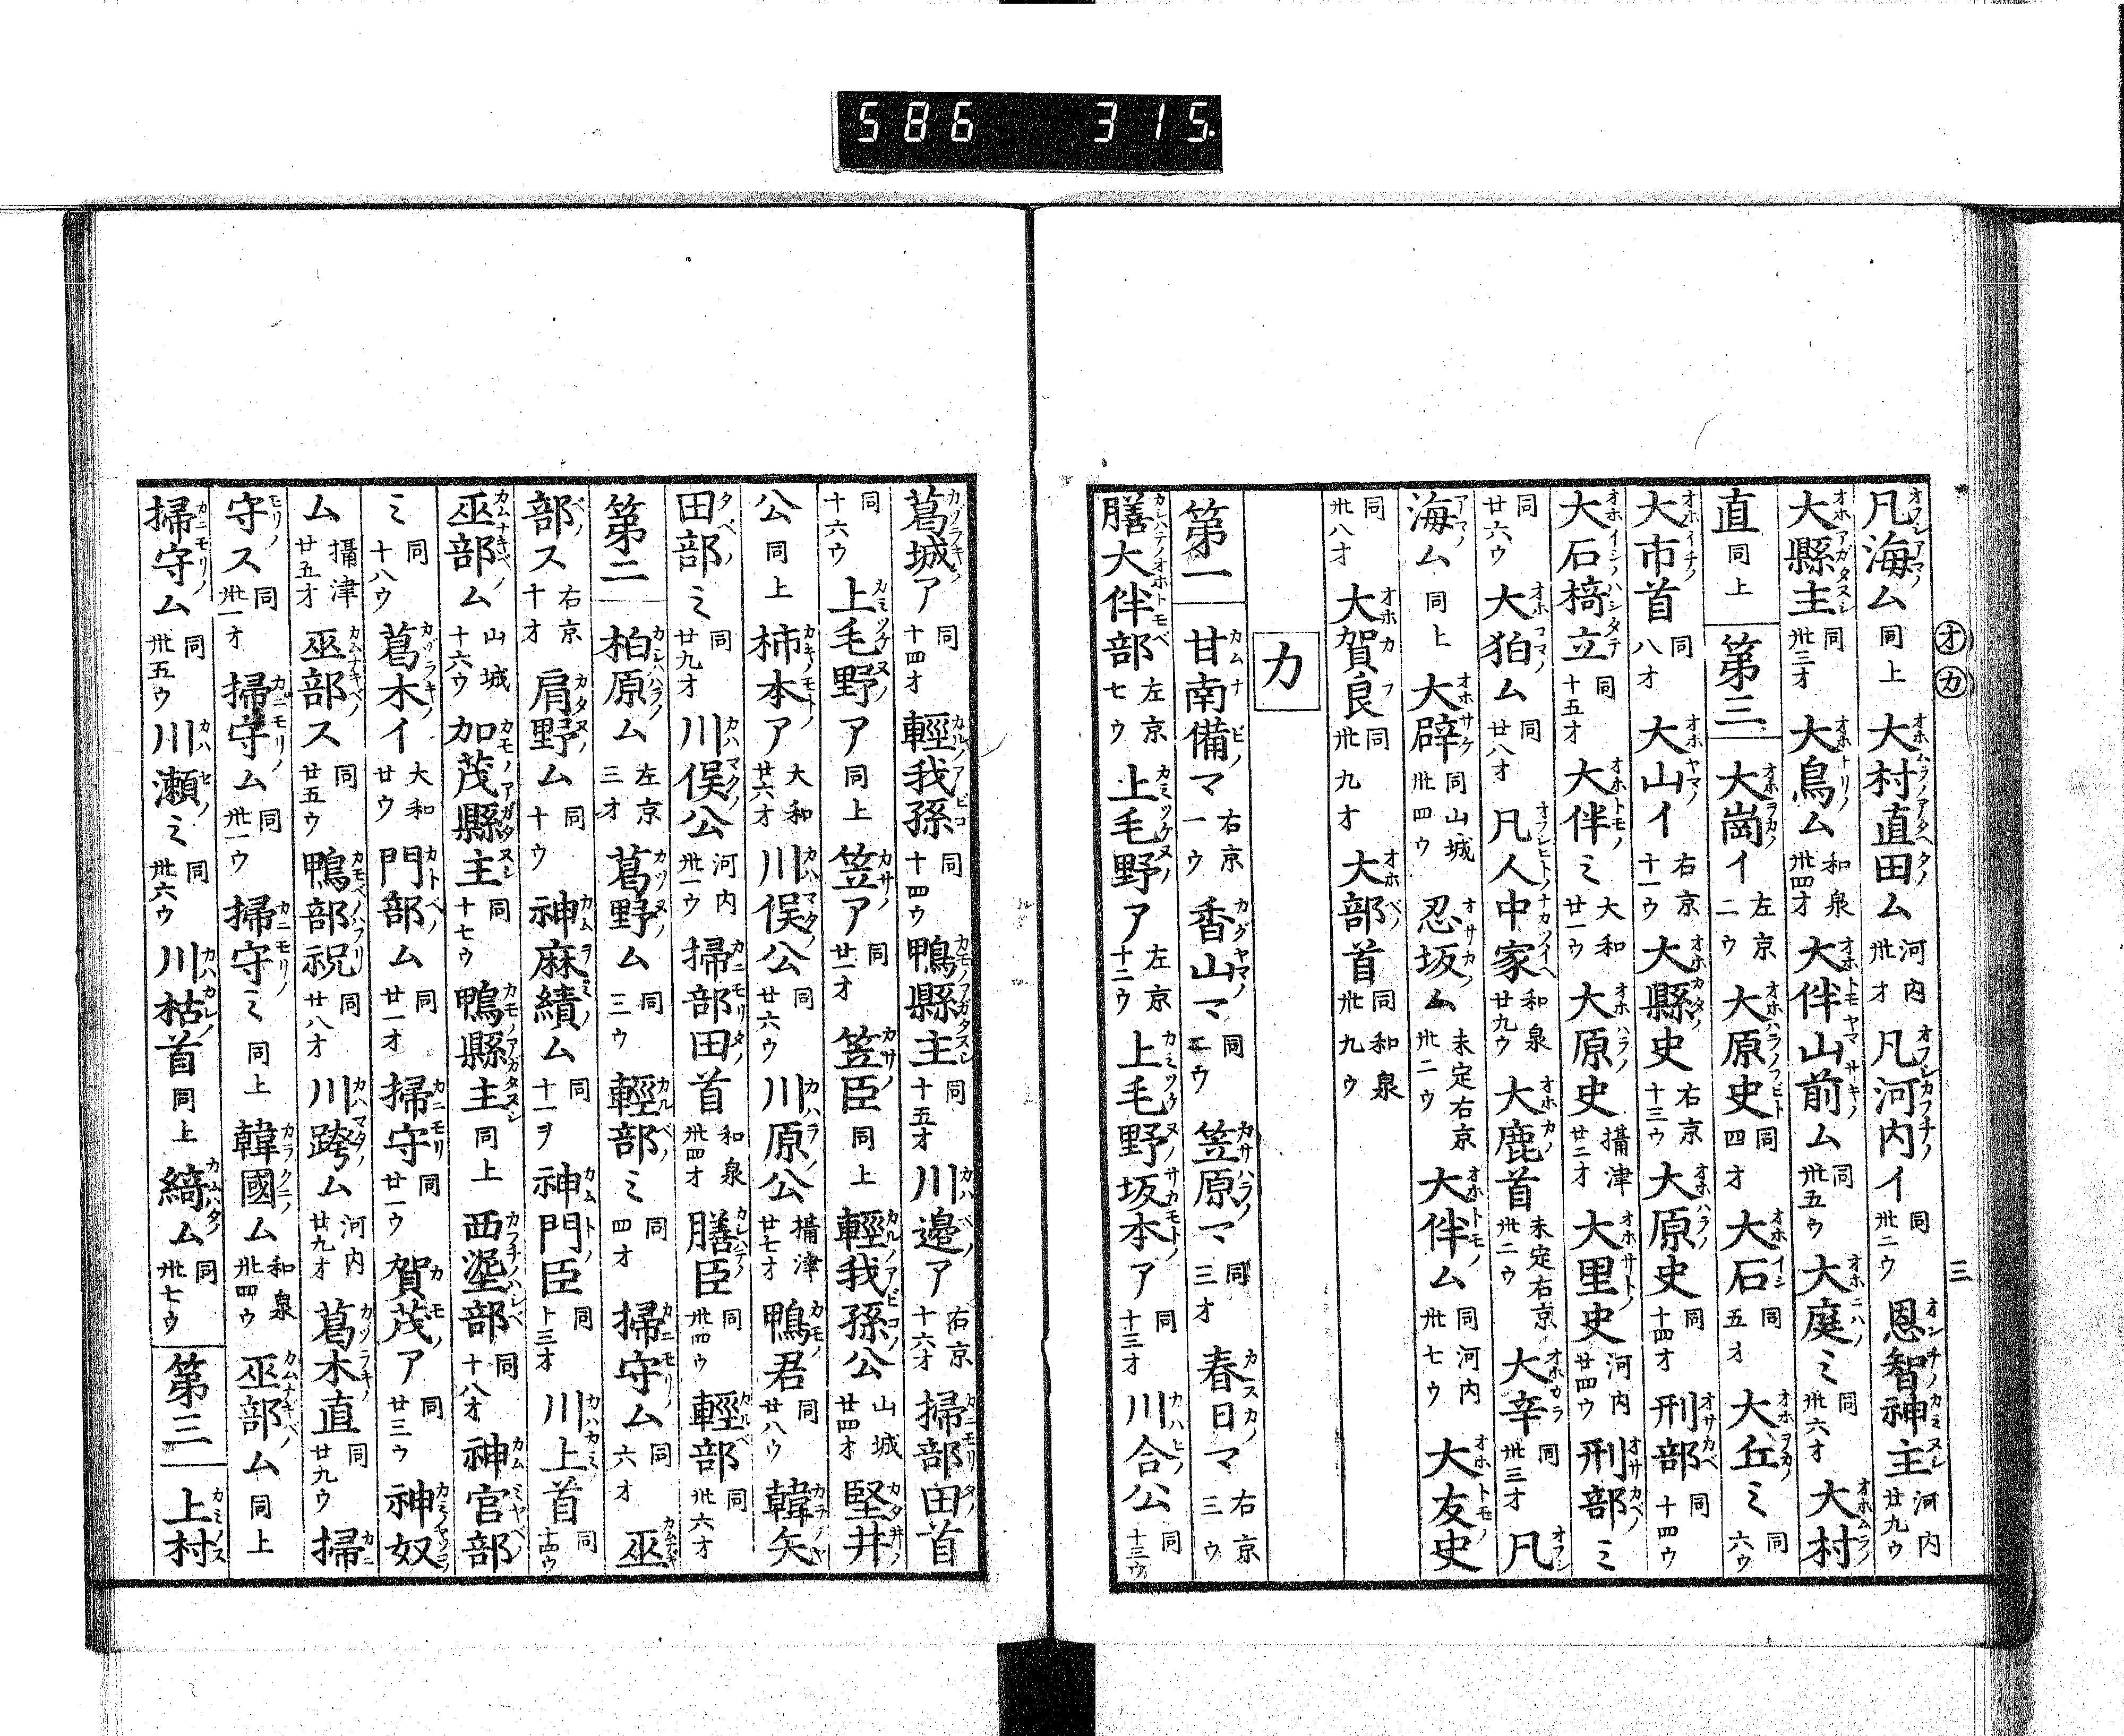 586 315.
オ カ
三
凡海ム同上 大村直田ム河内卅オ 凡河内イ同卅二ウ 恩智神主河内廿九ウ
大縣主同卅三オ 大鳥ム和泉卅四オ 大伴山前ム同卅五ウ 大庭ミ同卅六オ 大村
直同上 第三 大崗イ左京二ウ 大原史同四オ 大石同五オ 大丘ミ同六ウ
大市首同八オ 大山イ右京十一ウ 大縣史右京十三ウ 大原史同十四オ 刑部同十四ウ
大石椅立同十五オ 大伴ミ大和廿一ウ 大原史攝津廿三オ 大里史河内廿四ウ 刑部ミ
同廿六ウ 大狛ム同廿八オ 凡人中家和泉廿九ウ 大鹿首未定右京卅二ウ 大辛同卅三オ 凡
海ム同上 大辟同山城卅四ウ 忍坂ム未定右京卅二ウ 大伴ム同河内卅七ウ 大友史
同卅八オ 大賀良同卅九オ 大部首同和泉卅九ウ
カ
第一 甘南備マ右京一ウ 香山マ同二ウ 笠原マ同三オ 春日マ右京三ウ
膳大伴部左京七ウ 上毛野ア左京十二ウ 上毛野坂本ア同十三オ 川合公同十三ウ
葛城ア同十四オ 輕我孫同十四ウ 鴨縣主同十五オ 川邉ア右京十六オ 掃部田首
同十六ウ 上毛野ア同上 笠ア同廿一オ 笠臣同上 輕我孫公山城廿四オ 堅井
公同上 柿本ア大和廿六オ 川俣公同廿六ウ 川原公攝津廿七オ 鴨君同廿八ウ 韓矢
田部ミ同廿九オ 川俣公河内卅一ウ 掃部田首和泉卅四オ 膳臣同卅四ウ 輕部同卅六オ
第二 柏原ム左京三オ 葛野ム同三ウ 輕部ミ同四オ 掃守ム同六オ 巫
部ス右京十オ 肩野ム同十ウ 神麻績ム同十一ヲ 神門臣同十三オ 川上首同十四ウ
巫部ム山城十六ウ 加茂縣主同十七ウ 鴨縣主同上 西埿部同十八オ 神宮部
ミ同十八ウ 葛木イ大和廿ウ 門部ム同廿一オ 掃守同廿一ウ 賀茂ア同廿三ウ 神奴
ム攝津廿五オ 巫部ス同廿五ウ 鴨部祝同廿八オ 川跨ム河内廿九オ 葛木直同廿九ウ 掃
守ス同卅一オ 掃守ム同卅一ウ 掃守ミ同上 韓國ム和泉卅四ウ 巫部ム同上
掃守ム同卅五ウ 川瀬ミ同卅六ウ 川枯首同上 綺ム同卅七ウ 第三 上村